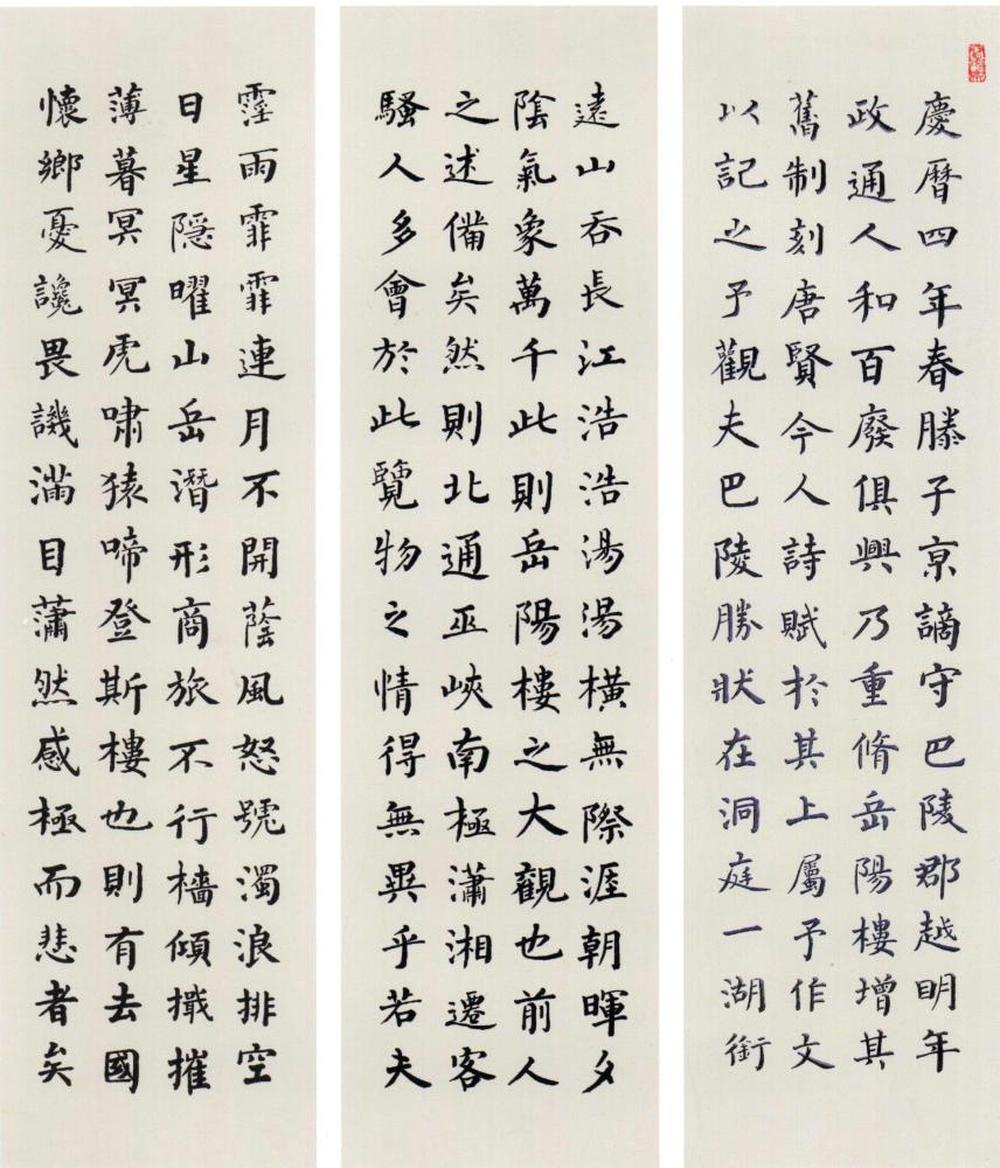 慶曆四年春滕子京謫守巴陵郡越明年
政通人和百廢俱興乃重脩岳陽樓增其
舊制刻唐賢今人詩賦於其上屬予作文
以記之予觀夫巴陵勝狀在洞庭一湖銜
遠山吞長江浩浩湯湯橫無際涯朝暉夕
陰氣象萬千此則岳陽樓之大觀也前人
之述備矣然則北通巫峽南極瀟湘遷客
騷人多會於此覽物之情得無異乎若夫
霪雨霏霏連月不開蔭風怒號濁浪排空
日星隱曜山岳潛形商旅不行檣傾檝摧
薄暮冥冥虎嘯猿啼登斯樓也則有去國
懷鄉憂讒畏譏滿目蕭然感極而悲者矣